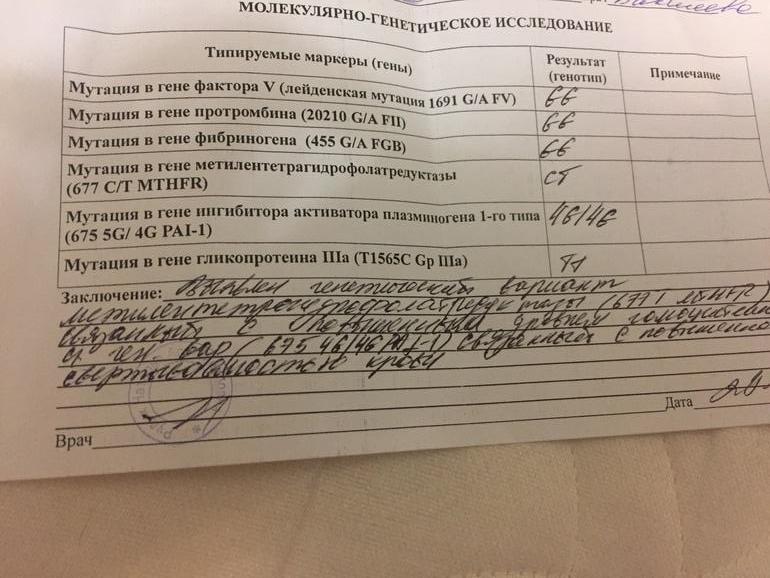 МОЛЕКУЛЯРНО-ГЕНЕТИЧЕСКОЕ ИССЛЕДОВАНИЕ
Типируемые маркеры (гены) Результат (генотип) Примечание
Мутация в гене фактора V (лейденская мутация 1691 G/A FV) GG
Мутация в гене протромбина (20210 G/A FII) GG
Мутация в гене фибриногена (455 G/A FGB) GG
Мутация в гене метилентетрагидрофолатредуктазы
(677 C/T MTHFR) CT
Мутация в гене ингибитора активатора плазминогена 1-го типа
(675 5G/ 4G PAI-1) 4G/4G
Мутация в гене гликопротеина IIIa (T1565C Gp IIIa) TT
Заключение: Выявлен генетический вариант
метилентетрагидрофолатредуктазы (677T MTHFR)
связанный с повышенным уровнем гомоцистеина
и ген. вар (675 4G/4G PAI-1) связанный с повышенно
свертываемостью крови
Врач Дата